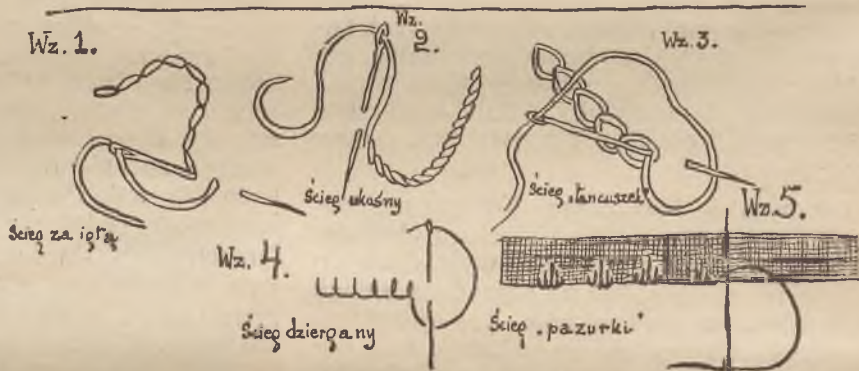 Wz. 1.
Wz. 2.
Wz. 3.
Ścieg za igłą
Ścieg ukośny
Ścieg „łańcuszek"
Wz. 4.
Wz. 5.
Ścieg dziergany
Ścieg „pazurki"